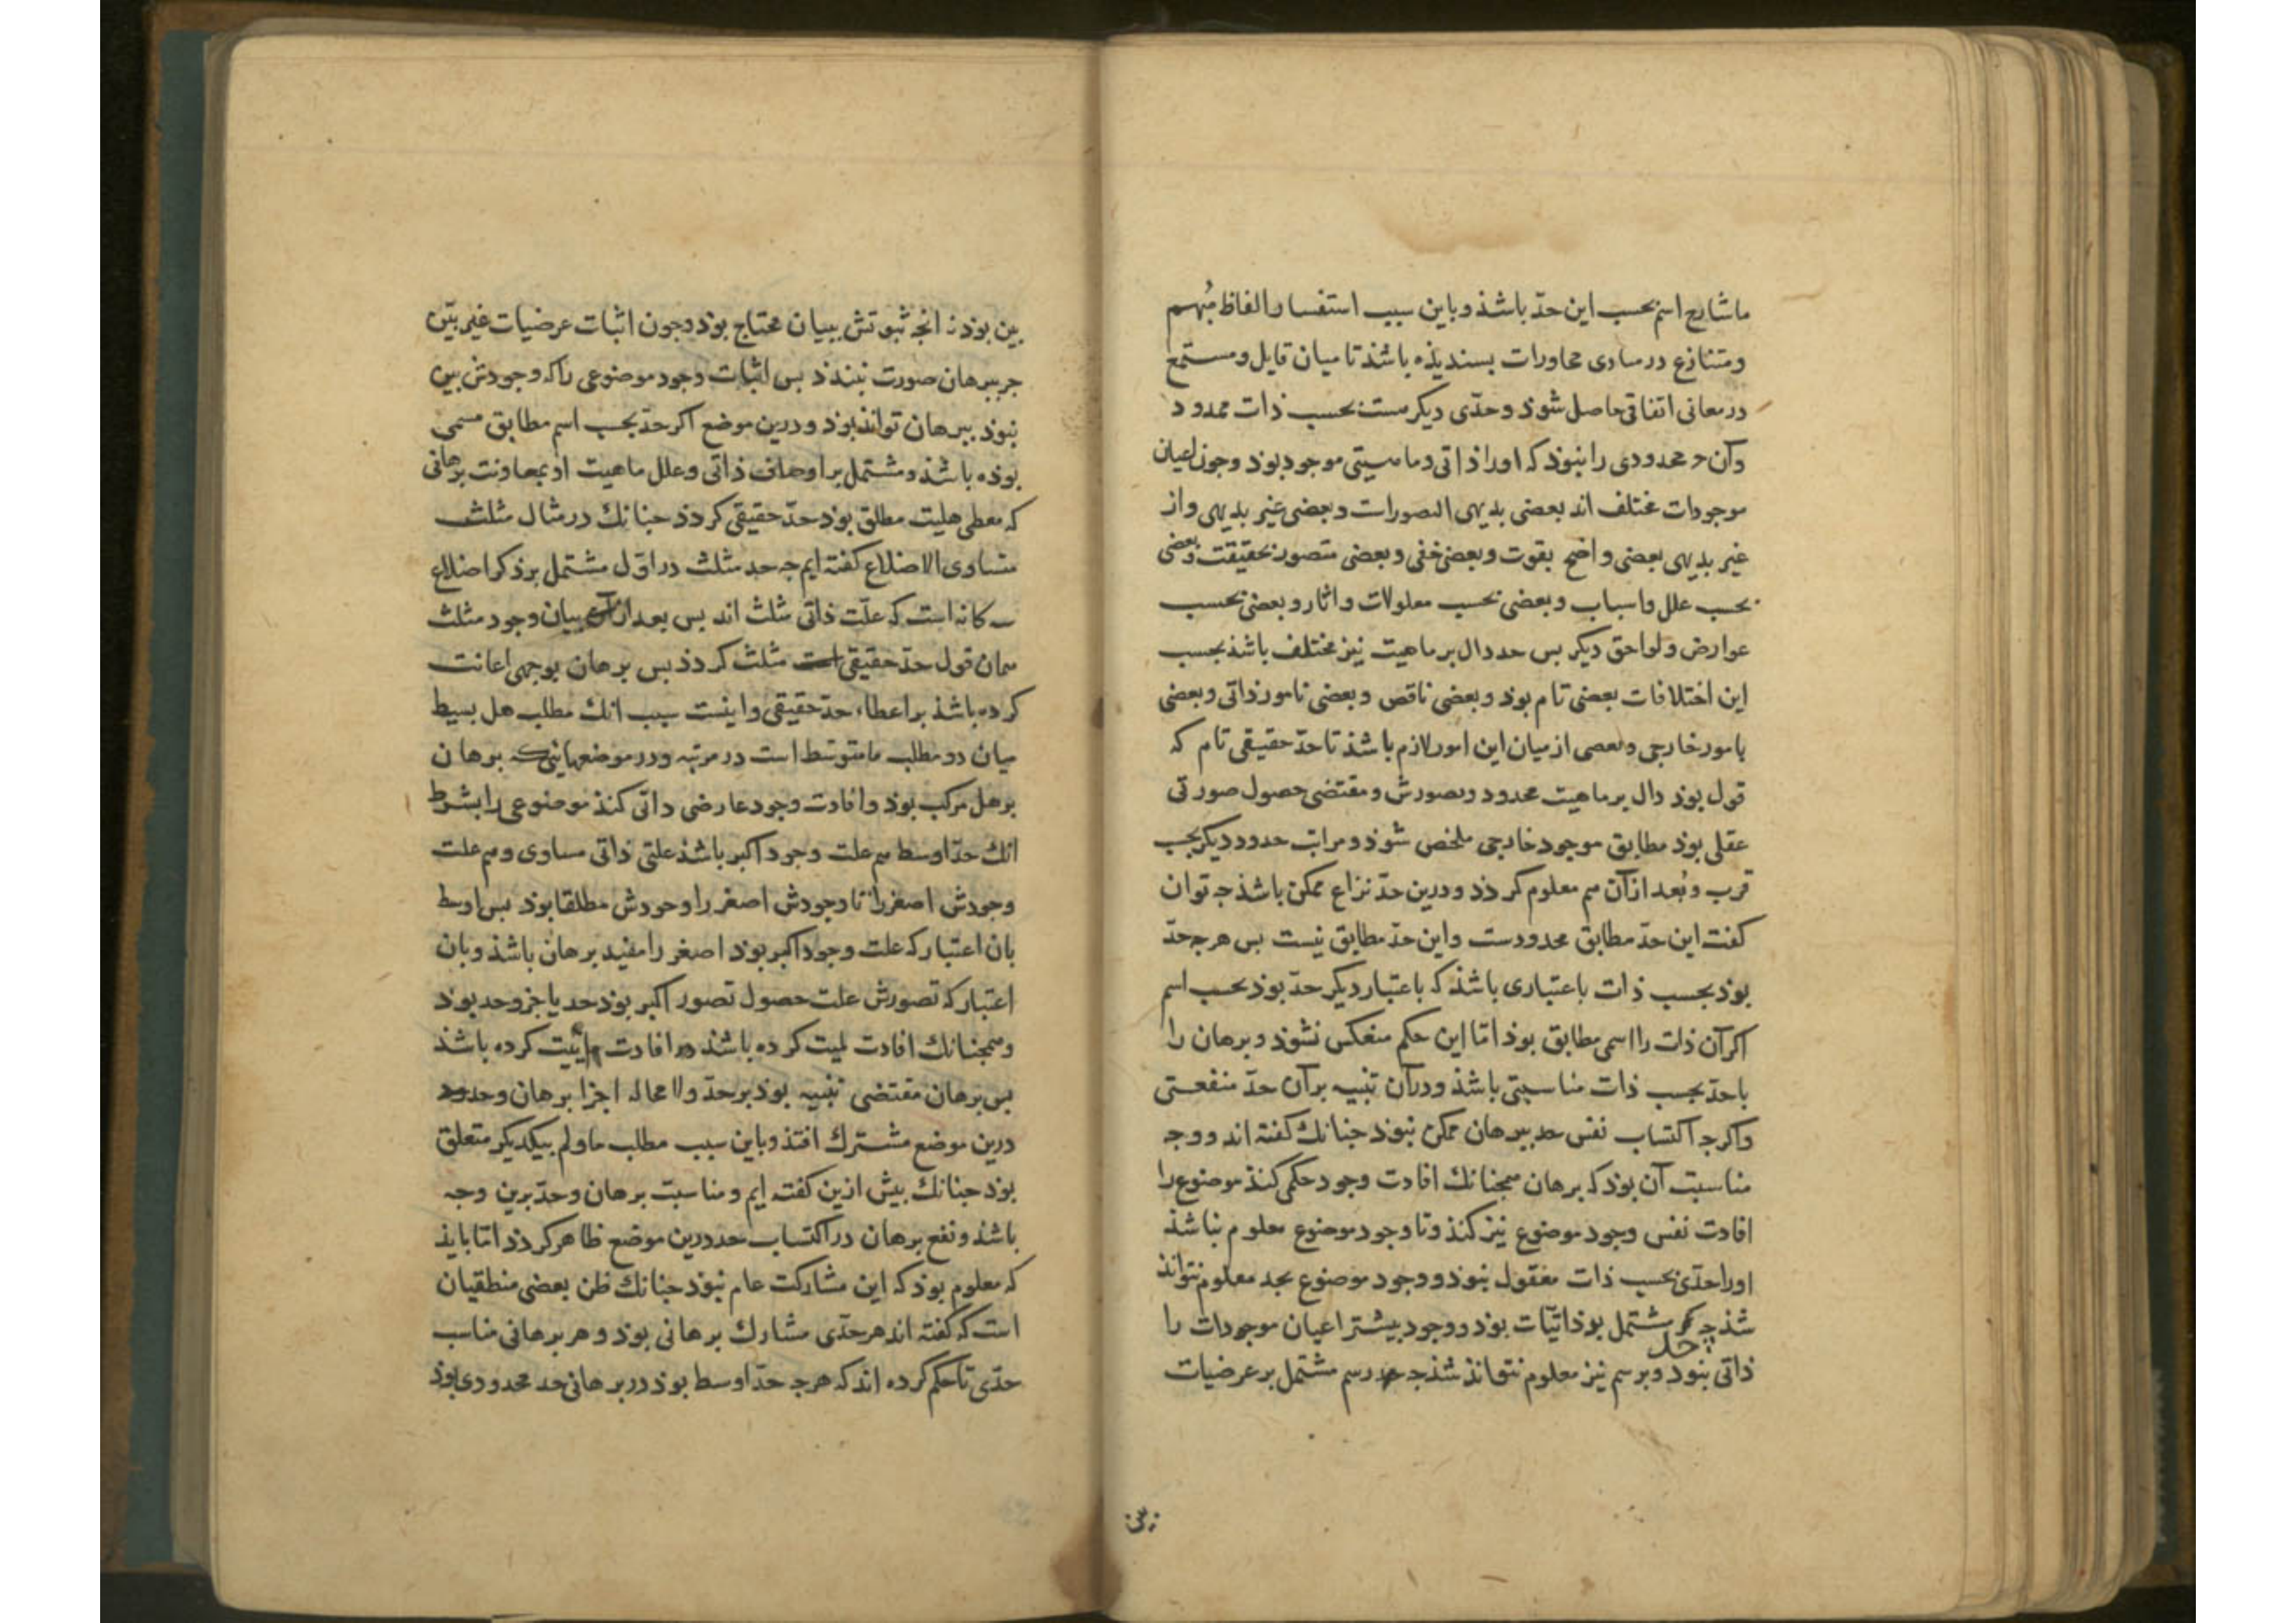 ما شارح اسم بحسب این حدّ باشذ و باین سبب استفسار الفاظ مُبهم
و متنازع در مبادی محاورات بسندیذه باشذ تا میان قایل و مستمع
در معانی اتفاقی حاصل شوذ و حدّی دیکر هست بحسب ذات محدود
و آن جز محدودی را نبوذ که او را ذاتی و ماهیتی موجود بوذ و جون اعیان
موجودات مختلف اند بعضی بدیهی التصورات و بعضی غیر بدیهی و از
غیر بدیهی بعضی واضح بقوت و بعضی خفی و بعضی متصور بحقیقت و بعضی
بحسب علل و اسباب و بعضی بحسب معلولات و اثار و بعضی بحسب
عوارض و لواحق دیکر بس حد دال بر ماهیت نیز مختلف باشذ بحسب
این اختلافات بعضی تام بوذ و بعضی ناقص و بعضی بامور ذاتی و بعضی
بامور خارجی و بعضی از میان این امور لازم باشذ تا حدّ حقیقی تام که
قول بوذ دال بر ماهیت محدود و بصورش و مقتضی حصول صورتی
عقلی بوذ مطابق موجود خارجی ملخص شوذ و مراتب حدود دیکر بحسب
قرب و بُعد از آن هم معلوم کردذ و درین حدّ نزاع ممکن باشذ جه توان
کفت این حدّ مطابق محدودست و این حدّ مطابق نیست بس هرجه حدّ
بوذ بحسب ذات باعتباری باشذ که باعتبار دیکر حدّ بوذ بحسب اسم
اکر آن ذات را اسمی مطابق بوذ امّا این حکم منعکس نشوذ و برهان را
با حدّ بحسب ذات مناسبتی باشذ و در آن تنبیه بر آن حدّ منفعتی
و اکرجه اکتساب نفس حد ببرهان ممکن نبوذ جنانك کفته اند و وجه
مناسبت آن بوذ که برهان همجنانك افادت وجود حکمی کنذ موضوع را
افادت نفس وجود موضوع نیز کنذ و تا وجود موضوع معلوم نباشذ
او را حدّی بحسب ذات معقول نبوذ و وجود موضوع بحد معلوم نتوانذ
شذ جه حد مشتمل بوذاتیّات بود و وجود بیشتر اعیان موجودات را
ذاتی نبوذ و برسم نیز معلوم نتوانذ شذ جه رسم مشتمل بر عرضیات
بین بوذ نه انجه ثبوتش ببیان محتاج بوذ و جون اثبات عرضیات غیر بیّن
جز ببرهان صورت نبندذ بس اثبات وجود موضوعی را که وجودش بین
نبوذ ببرهان تواند بوذ و درین موضع اکر حدّ بحسب اسم مطابق مسمی
بوذه باشذ و مشتمل بر اوصاف ذاتی و علل ماهیت او بمعاونت برهانی
که معطی هلیت مطلق بوذ حدّ حقیقی کردذ جنانك در مثال مثلث
متساوی الاضلاع کفته ایم جه حد مثلث در اوّل مشتمل بر ذکر اضلاع
سه کانه است که علّت ذاتی مثلث اند بس بعد از آن بیان وجود مثلث
همان قول حدّ حقیقی مثلث کردذ بس برهان بوجهی اعانت
کرده باشذ بر اعطاء حدّ حقیقی و اینست سبب انك مطلب هل بسیط
میان دو مطلب ما متوسّط است در مرتبه و در موضعهایی که برهان
بر هل مرکب بوذ و افادت وجود عارضی داتی کنذ موضوعی را بشرط
انك حدّ اوسط هم علت وجود اکبر باشذ علتی ذاتی مساوی و هم علت
وجودش اصغر را تا وجودش اصغر را و حودش مطلقا بوذ بس اوسط
بان اعتبار که علت وجود اکبر بوذ اصغر را مفید برهان باشذ و بان
اعتبار که تصورش علت حصول تصور اکبر بوذ حد یا جزو حد بوذ
و همجنانك افادت لمیت کرده باشذ افادت ماییت کرده باشذ
بس برهان مقتضی تنبیه بوذ بر حدّ و لا محاله اجزا برهان و حدود
درین موضع مشترك افتذ و باین سبب مطلب ما و لم بیکدیکر متعلق
بوذ جنانك بیش ازین کفته ایم و مناسبت برهان و حدّ برین وجه
باشذ و نفع برهان در اکتساب حد درین موضع ظاهر کردذ امّا بایذ
که معلوم بوذ که این مشارکت عام نبوذ جنانك ظن بعضی منطقیان
است که کفته اند هر حدّی مشارك برهانی بوذ و هر برهانی مناسب
حدّی تا حکم کرده اند که هرجه حدّ اوسط بوذ در برهانی حد محدودی بوذ
بین